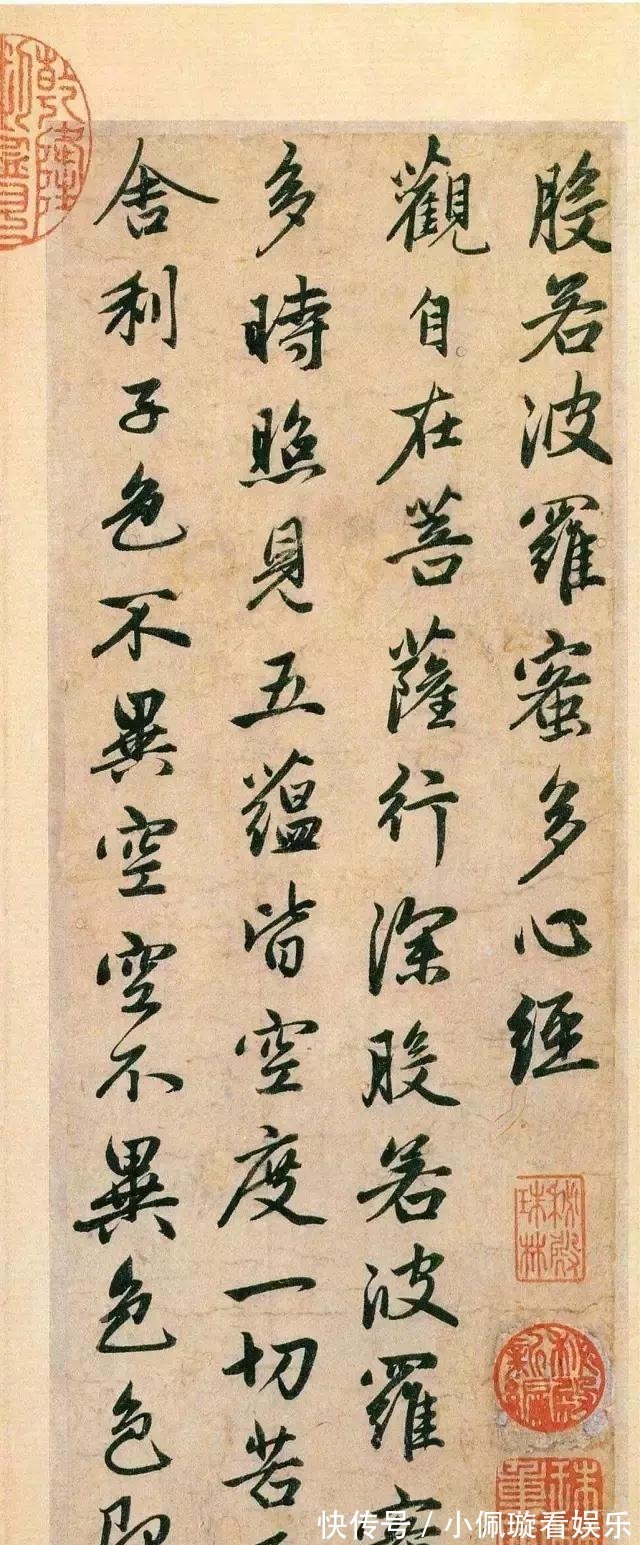 般若波羅蜜多心經
觀自在菩薩行深般若波羅
多時照見五蘊皆空度一切苦
舍利子色不異空空不異色色即
秘殿珠林
秘殿新編
乾隆
快传号 / 小佩璇看娱乐